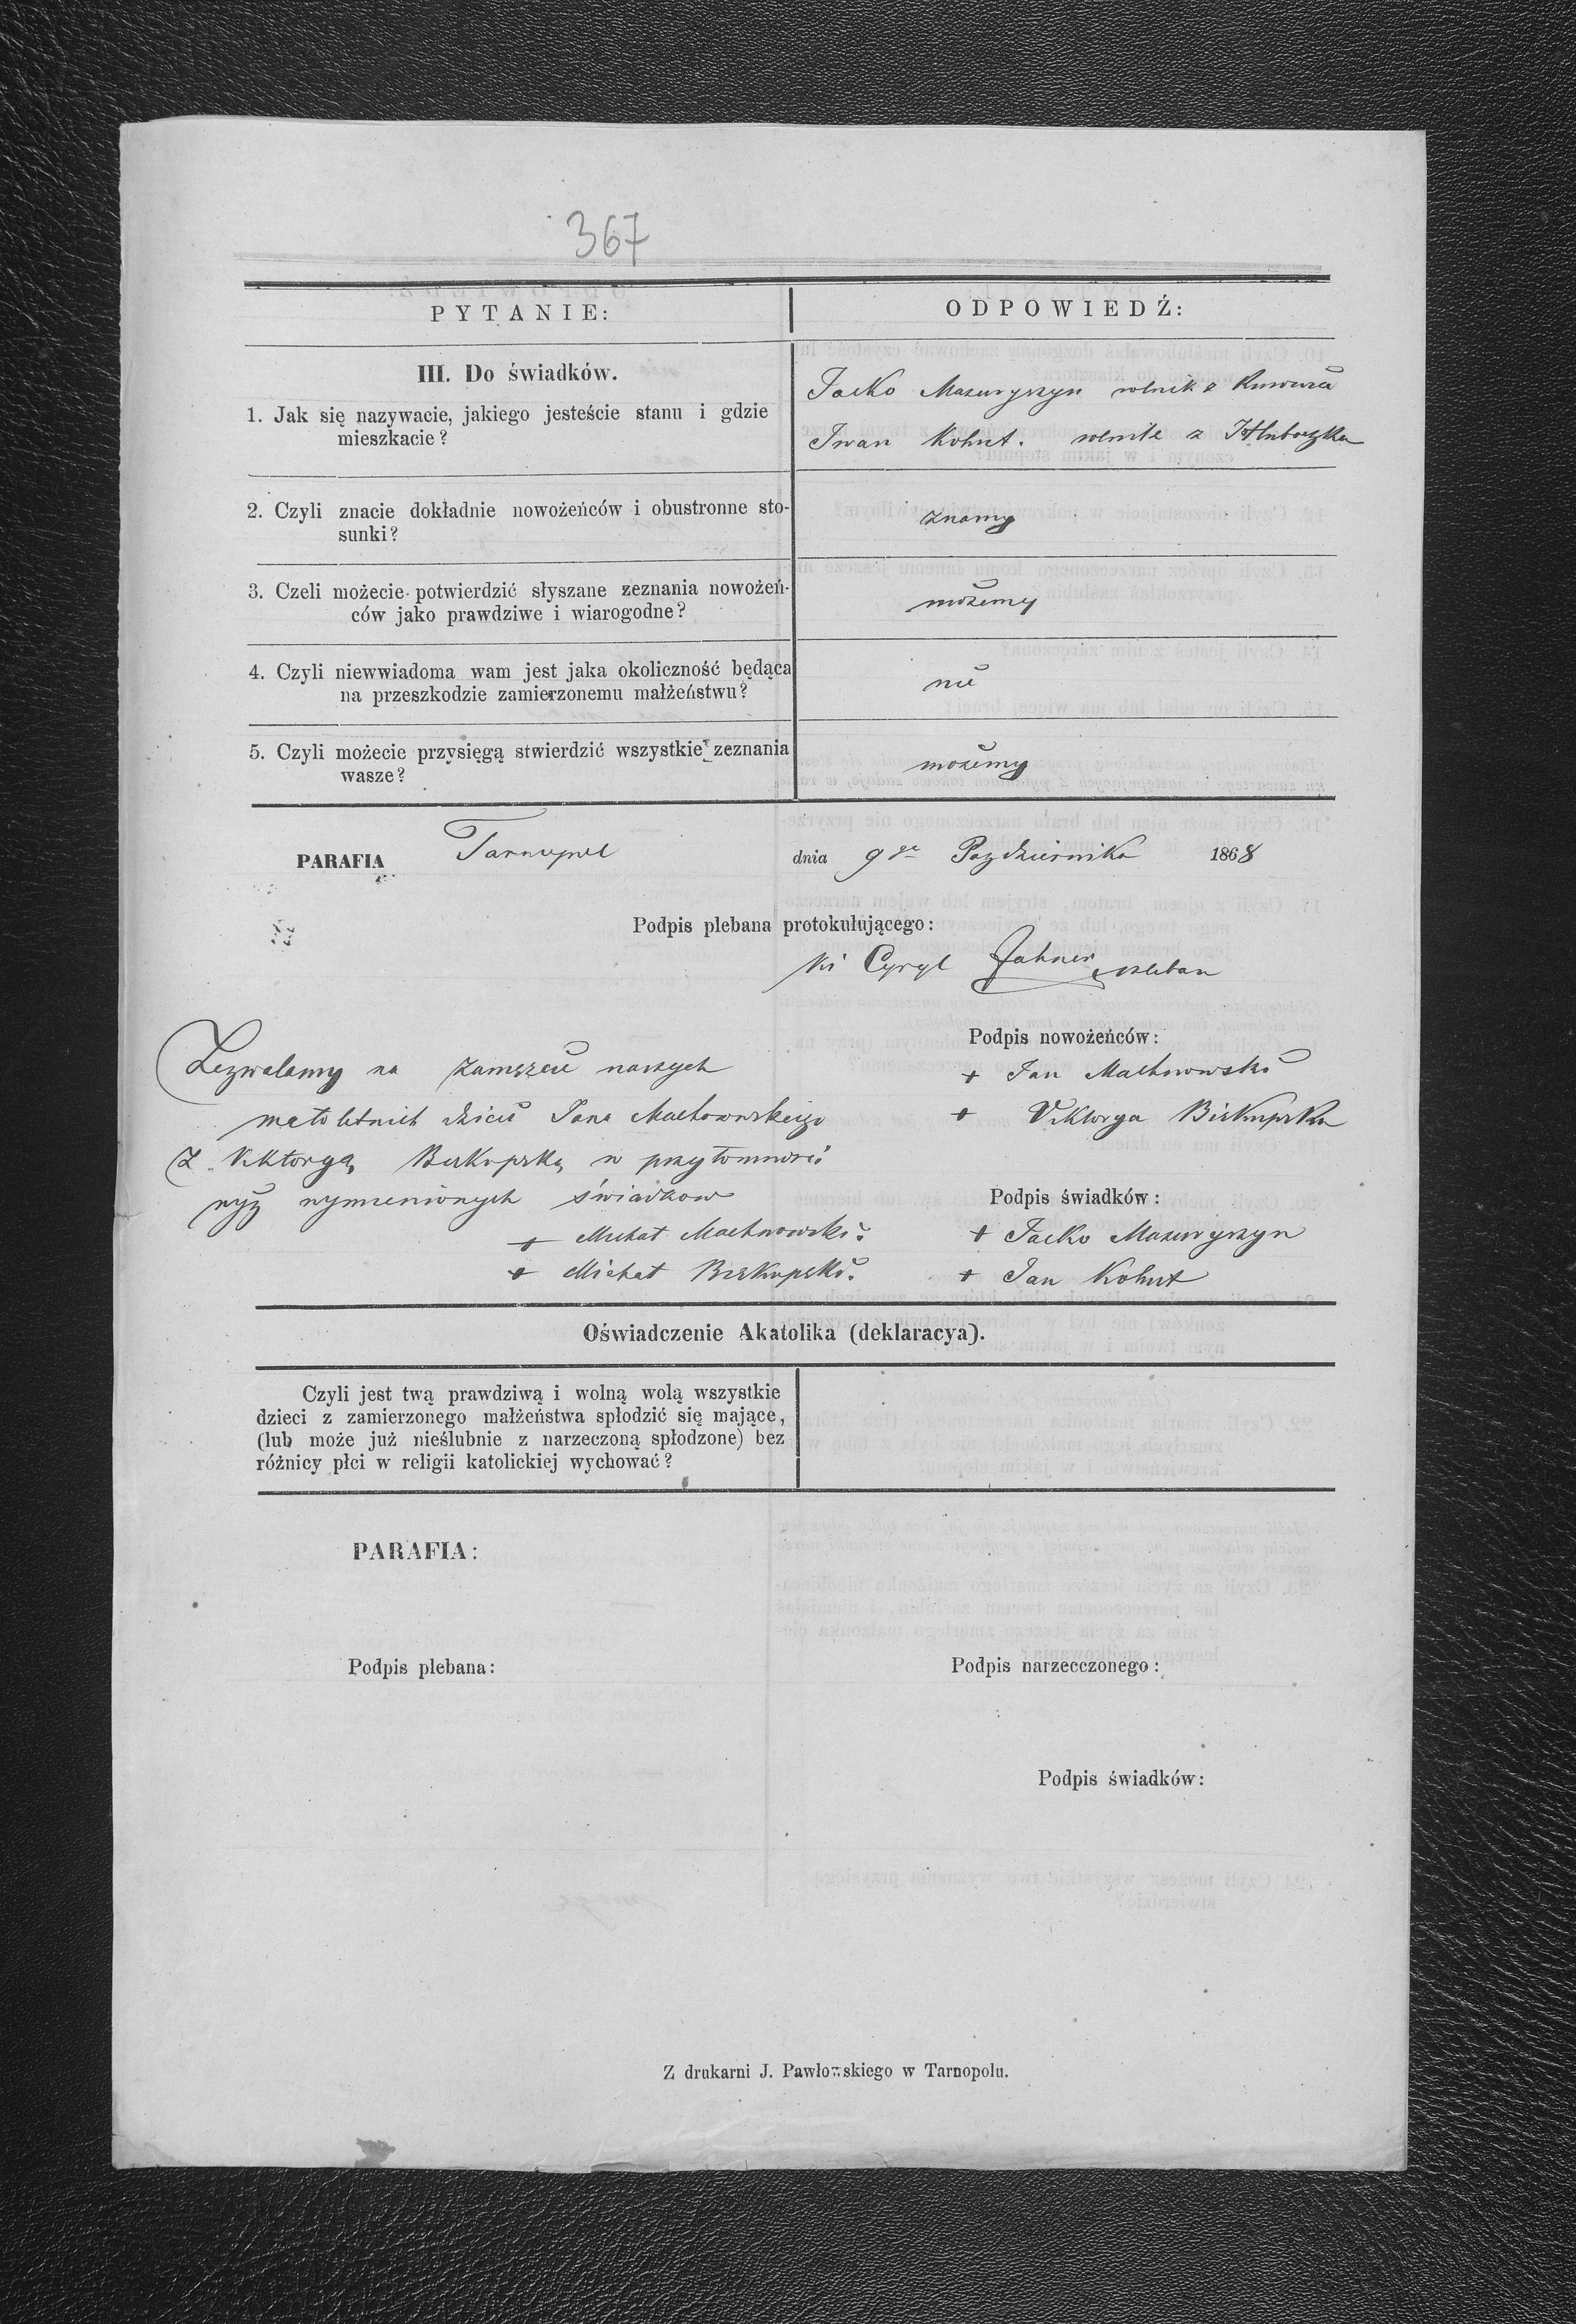 367
PYTANIE:
ODPOWIEDŹ:
III. Do świadków.
1. Jak się nazywacie, jakiego jesteście stanu i gdzie
mieszkacie?
Jacko Mazuryszyn rolnik z
Iwan Kohut. rolnik z Hluboczka
2. Czyli znacie dokładnie nowożeńców i obustronne sto-
sunki?
znamy
3. Czeli możecie potwierdzić słyszane zeznania nowożeń-
ców jako prawdziwe i wiarogodne?
możemy
4. Czyli niewwiadoma wam jest jaka okoliczność będąca
na przeszkodzie zamierzonemu małżeństwu?
nie
5. Czyli możecie przysięgą stwierdzić wszystkie zeznania
wasze?
możemy
PARAFIA Tarnopol dnia 9go Pazdziernika 1868
Podpis plebana protokułującego:
Cyryl pleban
Podpis nowożeńców:
+ Jan Machnowski
+ Viktorya Biskupska
Zezwalamy na zamęzcie naszych
małoletnich dzieci Jana Machowskiego
z Viktoryą Biskupską w przytomności
nyż wymienionych świadkow
+ Michał Machnowski
+ Michał Biskupski.
Podpis świadków:
+ Jacko Mazuryszyn
+ Jan Kohut
Oświadczenie Akatolika (deklaracya).
Czyli jest twą prawdziwą i wolną wolą wszystkie
dzieci z zamierzonego małżeństwa spłodzić się mające,
(lub może już nieślubnie z narzeczoną spłodzone) bez
różnicy płci w religii katolickiej wychować?
PARAFIA:
Podpis plebana:
Podpis narzecczonego:
Podpis świadków:
Z drukarni J. Pawłowskiego w Tarnopolu.